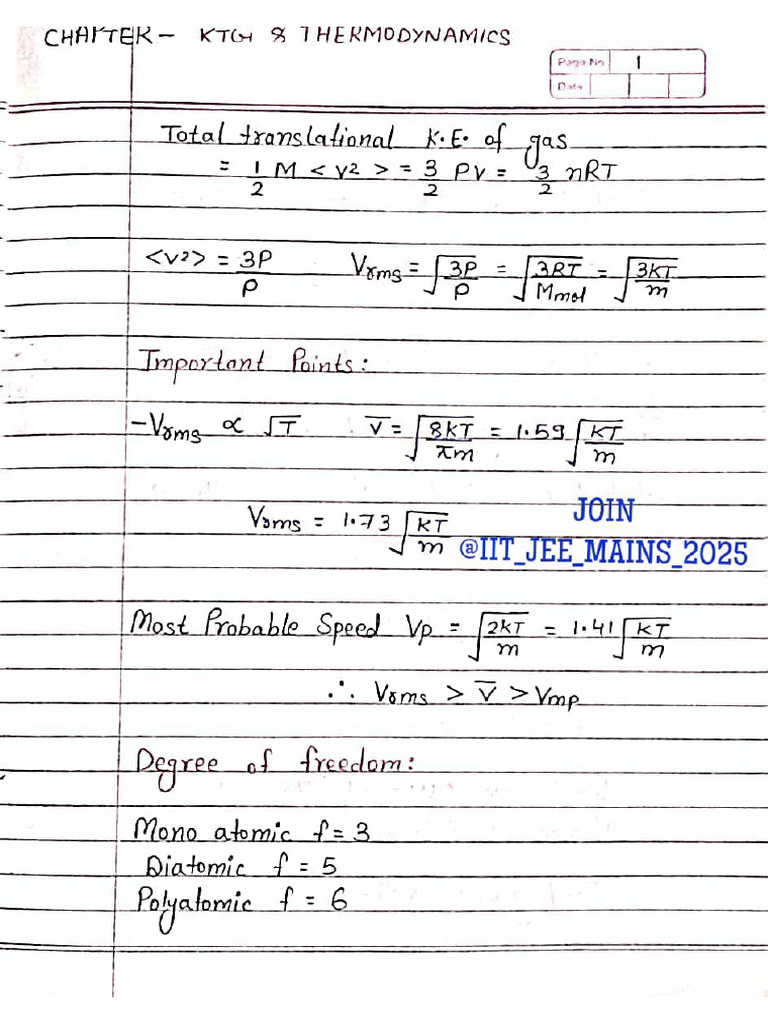 CHAPTER - KTG & THERMODYNAMICS
Page No 1
Date
Total translational K.E. of gas
= 1/2 M <v²> = 3/2 PV = 3/2 nRT
<v²> = 3P/ρ Vrms = √(3P/ρ) = √(3RT/Mmol) = √(3KT/m)
Important Points:
- Vrms ∝ √T v̅ = √(8KT/πm) = 1.59 √(KT/m)
Vrms = 1.73 √(KT/m)
JOIN
@IIT_JEE_MAINS_2025
Most Probable Speed Vp = √(2KT/m) = 1.41 √(KT/m)
∴ Vrms > v̅ > Vmp
Degree of freedom:
Mono atomic f = 3
Diatomic f = 5
Polyatomic f = 6